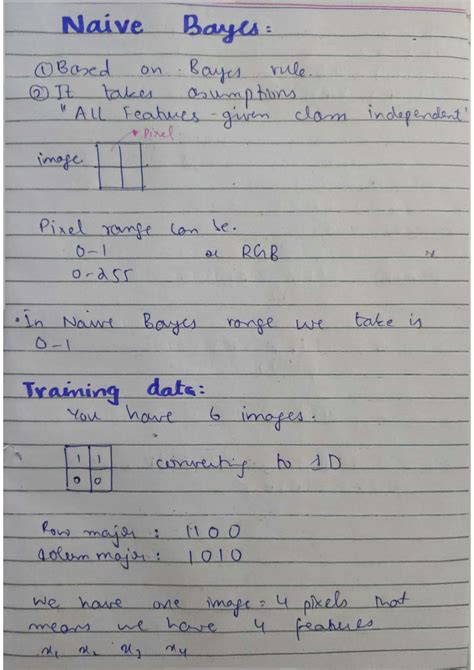 Naive Bayes:
① Based on Bayes rule.
② It takes assumptions
"All Features-given class independent"
Pixel
image
Pixel range can be.
0-1 or RGB
0-255
• In Naive Bayes range we take is
0-1
Training data:
You have 6 images.
1 1
0 0
converting to 1D
Row major : 1100
Colum major : 1010
We have one image = 4 pixels that
means we have 4 features
x1 x2 x3 x4